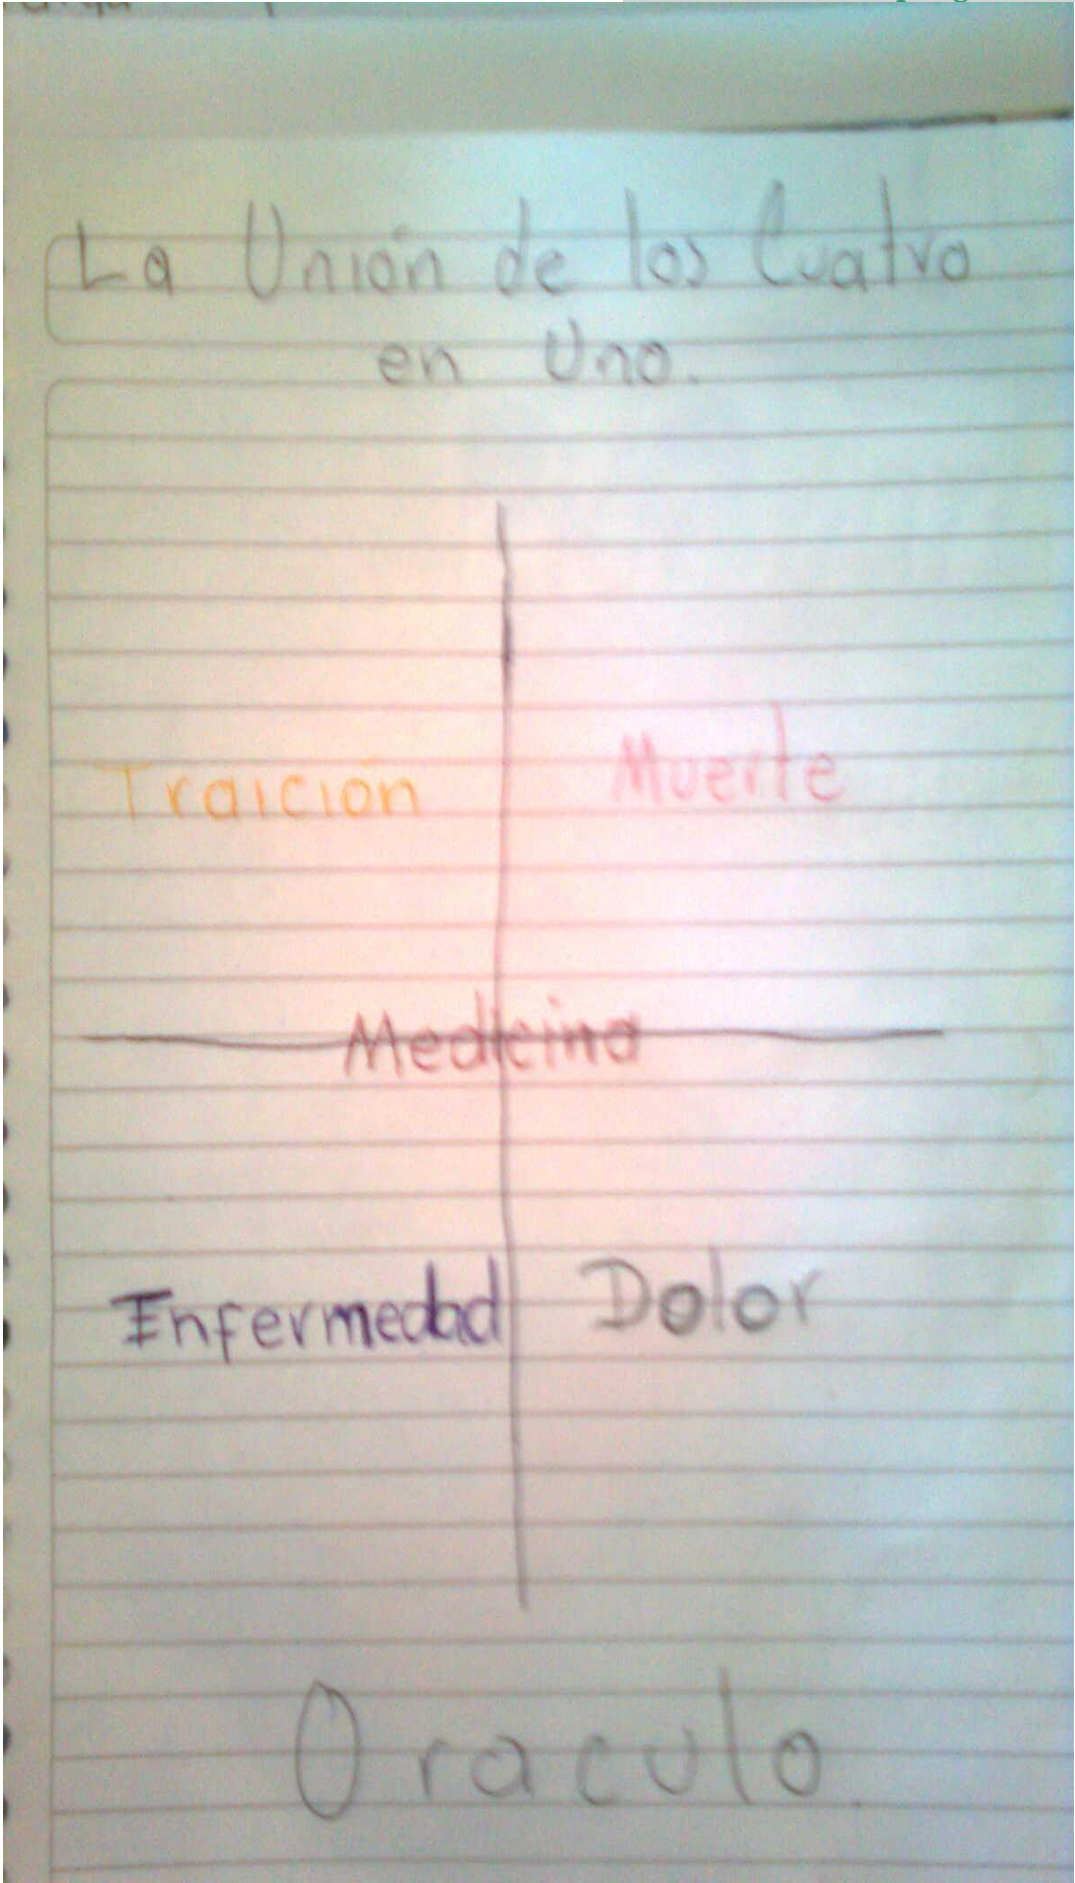 La Unión de los Cuatro
en Uno.
Traición
Muerte
Medicina
Enfermedad
Dolor
Oraculo.